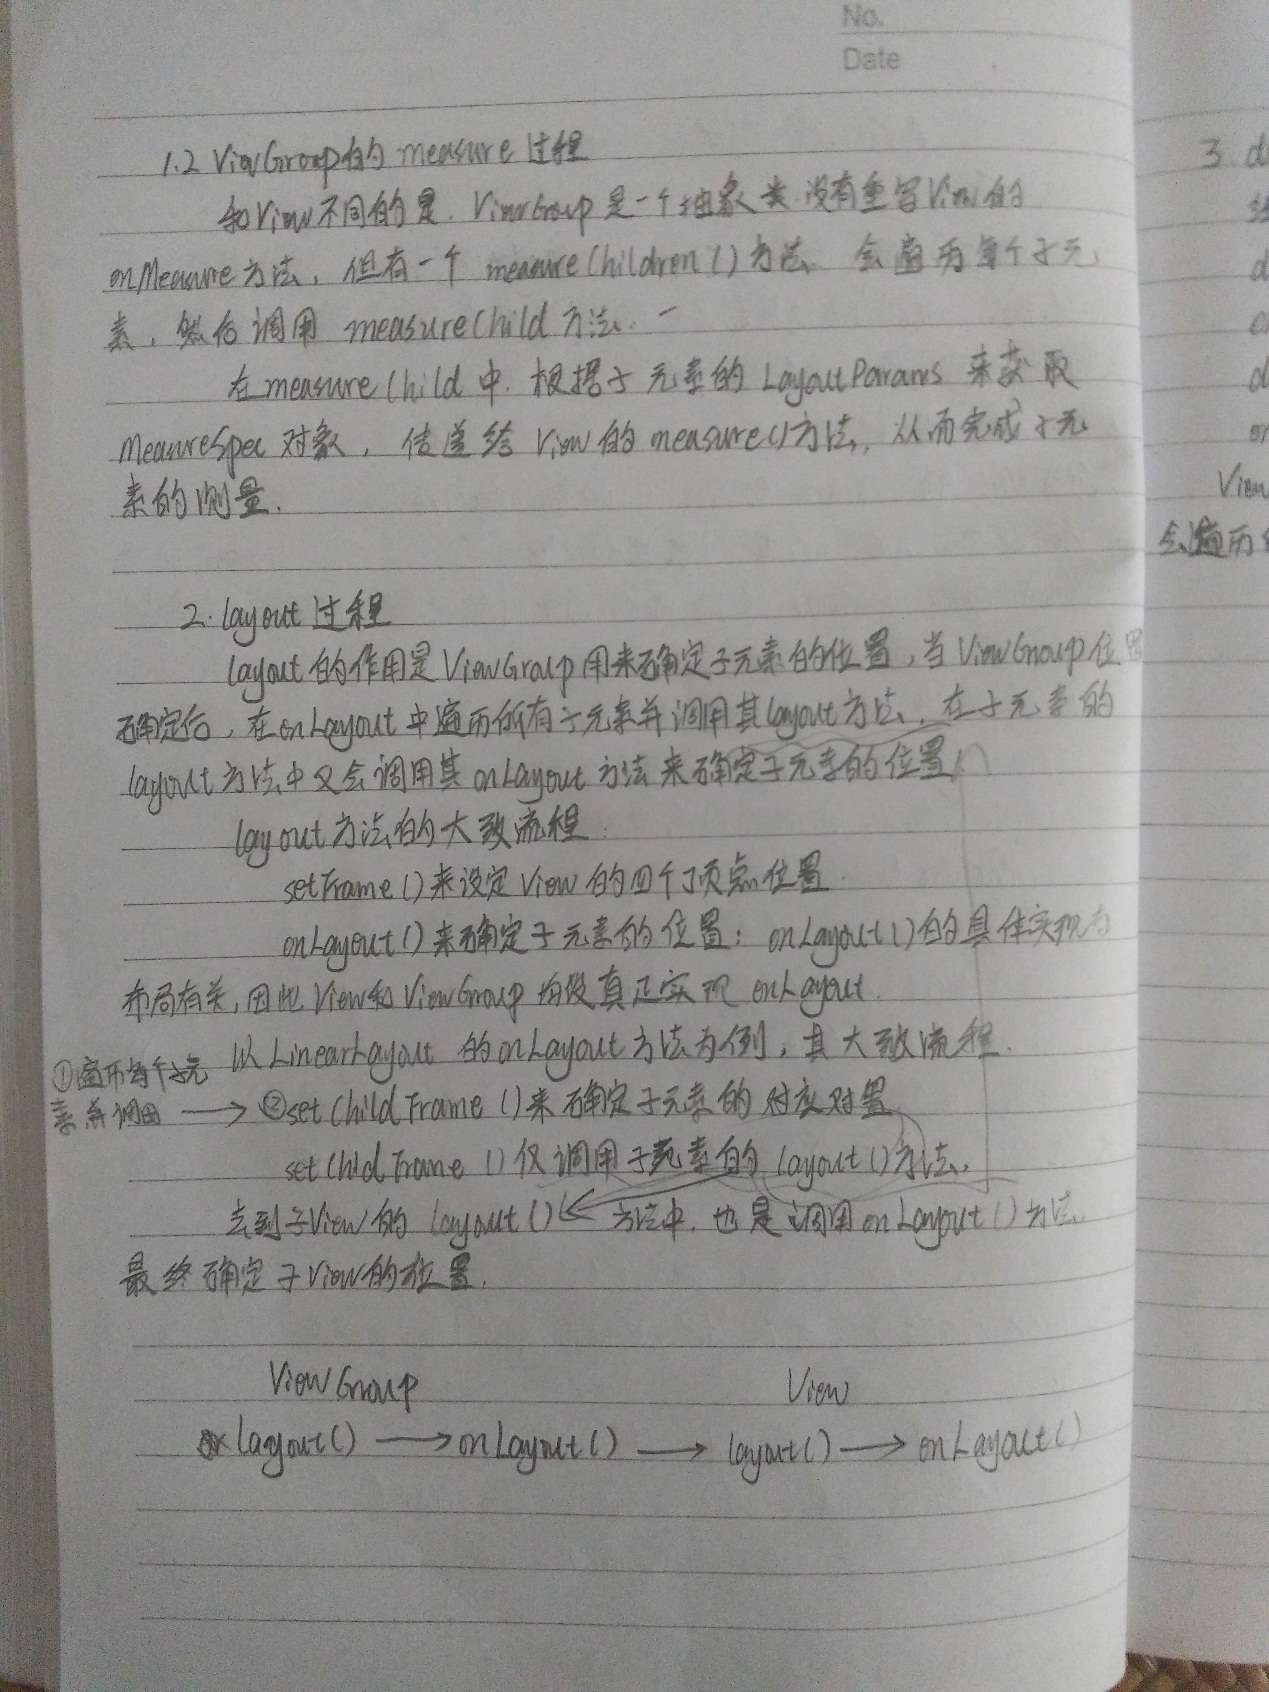 No.
Date
1.2 ViewGroup的measure过程
和View不同的是,ViewGroup是一个抽象类,没有重写View的
onMeasure方法,但有一个measureChildren()方法,会遍历每个子元
素,然后调用measureChild方法.
在measureChild中,根据子元素的LayoutParams来获取
MeasureSpec对象,传递给View的measure()方法,从而完成子元
素的测量.
2.layout过程
layout的作用是ViewGroup用来确定子元素的位置,当ViewGroup位置
确定后,在onLayout中遍历所有子元素并调用其layout方法,在子元素的
layout方法中又会调用其onLayout方法来确定子元素的位置
layout方法的大致流程:
setFrame()来设定View的四个顶点位置.
onLayout()来确定子元素的位置;onLayout()的具体实现与
布局有关,因此View和ViewGroup均没真正实现onLayout.
以LinearLayout的onLayout方法为例,其大致流程.
①遍历每个子元
素并调用 → ②setChildFrame()来确定子元素的对应对置
setChildFrame()仅调用子元素的layout()方法,
去到子View的layout()方法中,也是调用onLayout()方法,
最终确定子View的位置.
ViewGroup View
layout() → onLayout() → layout() → onLayout()
3. d
d
d
on
View
会遍历